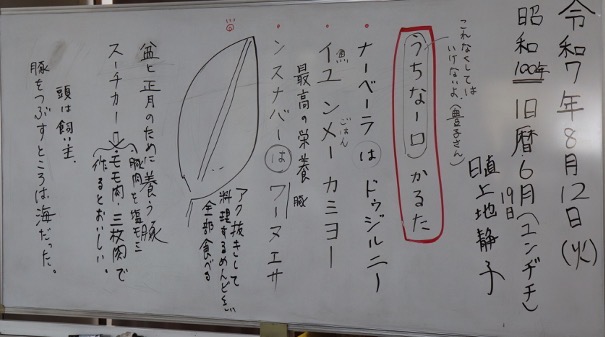 令和7年8月12日(火)
昭和100年 旧暦6月19日(ユンヂチ)
日直 上地静子
うちなー口かるた
これなくしては
いけないよ。(豊子さん)
・ナーベーラはドゥジルニー
・イユ ンメー カミヨー
魚 ごはん
最高の栄養
・ンスナバーはワーヌエサ
豚
アク抜きして
料理するめんどくさ
全部食べる
盆と正月のために養う豚
スーチカー(豚肉を塩モミ
・モモ肉・三枚肉で
作るとおいしい。)
頭は飼い主。
豚をつぶすところは海だった。